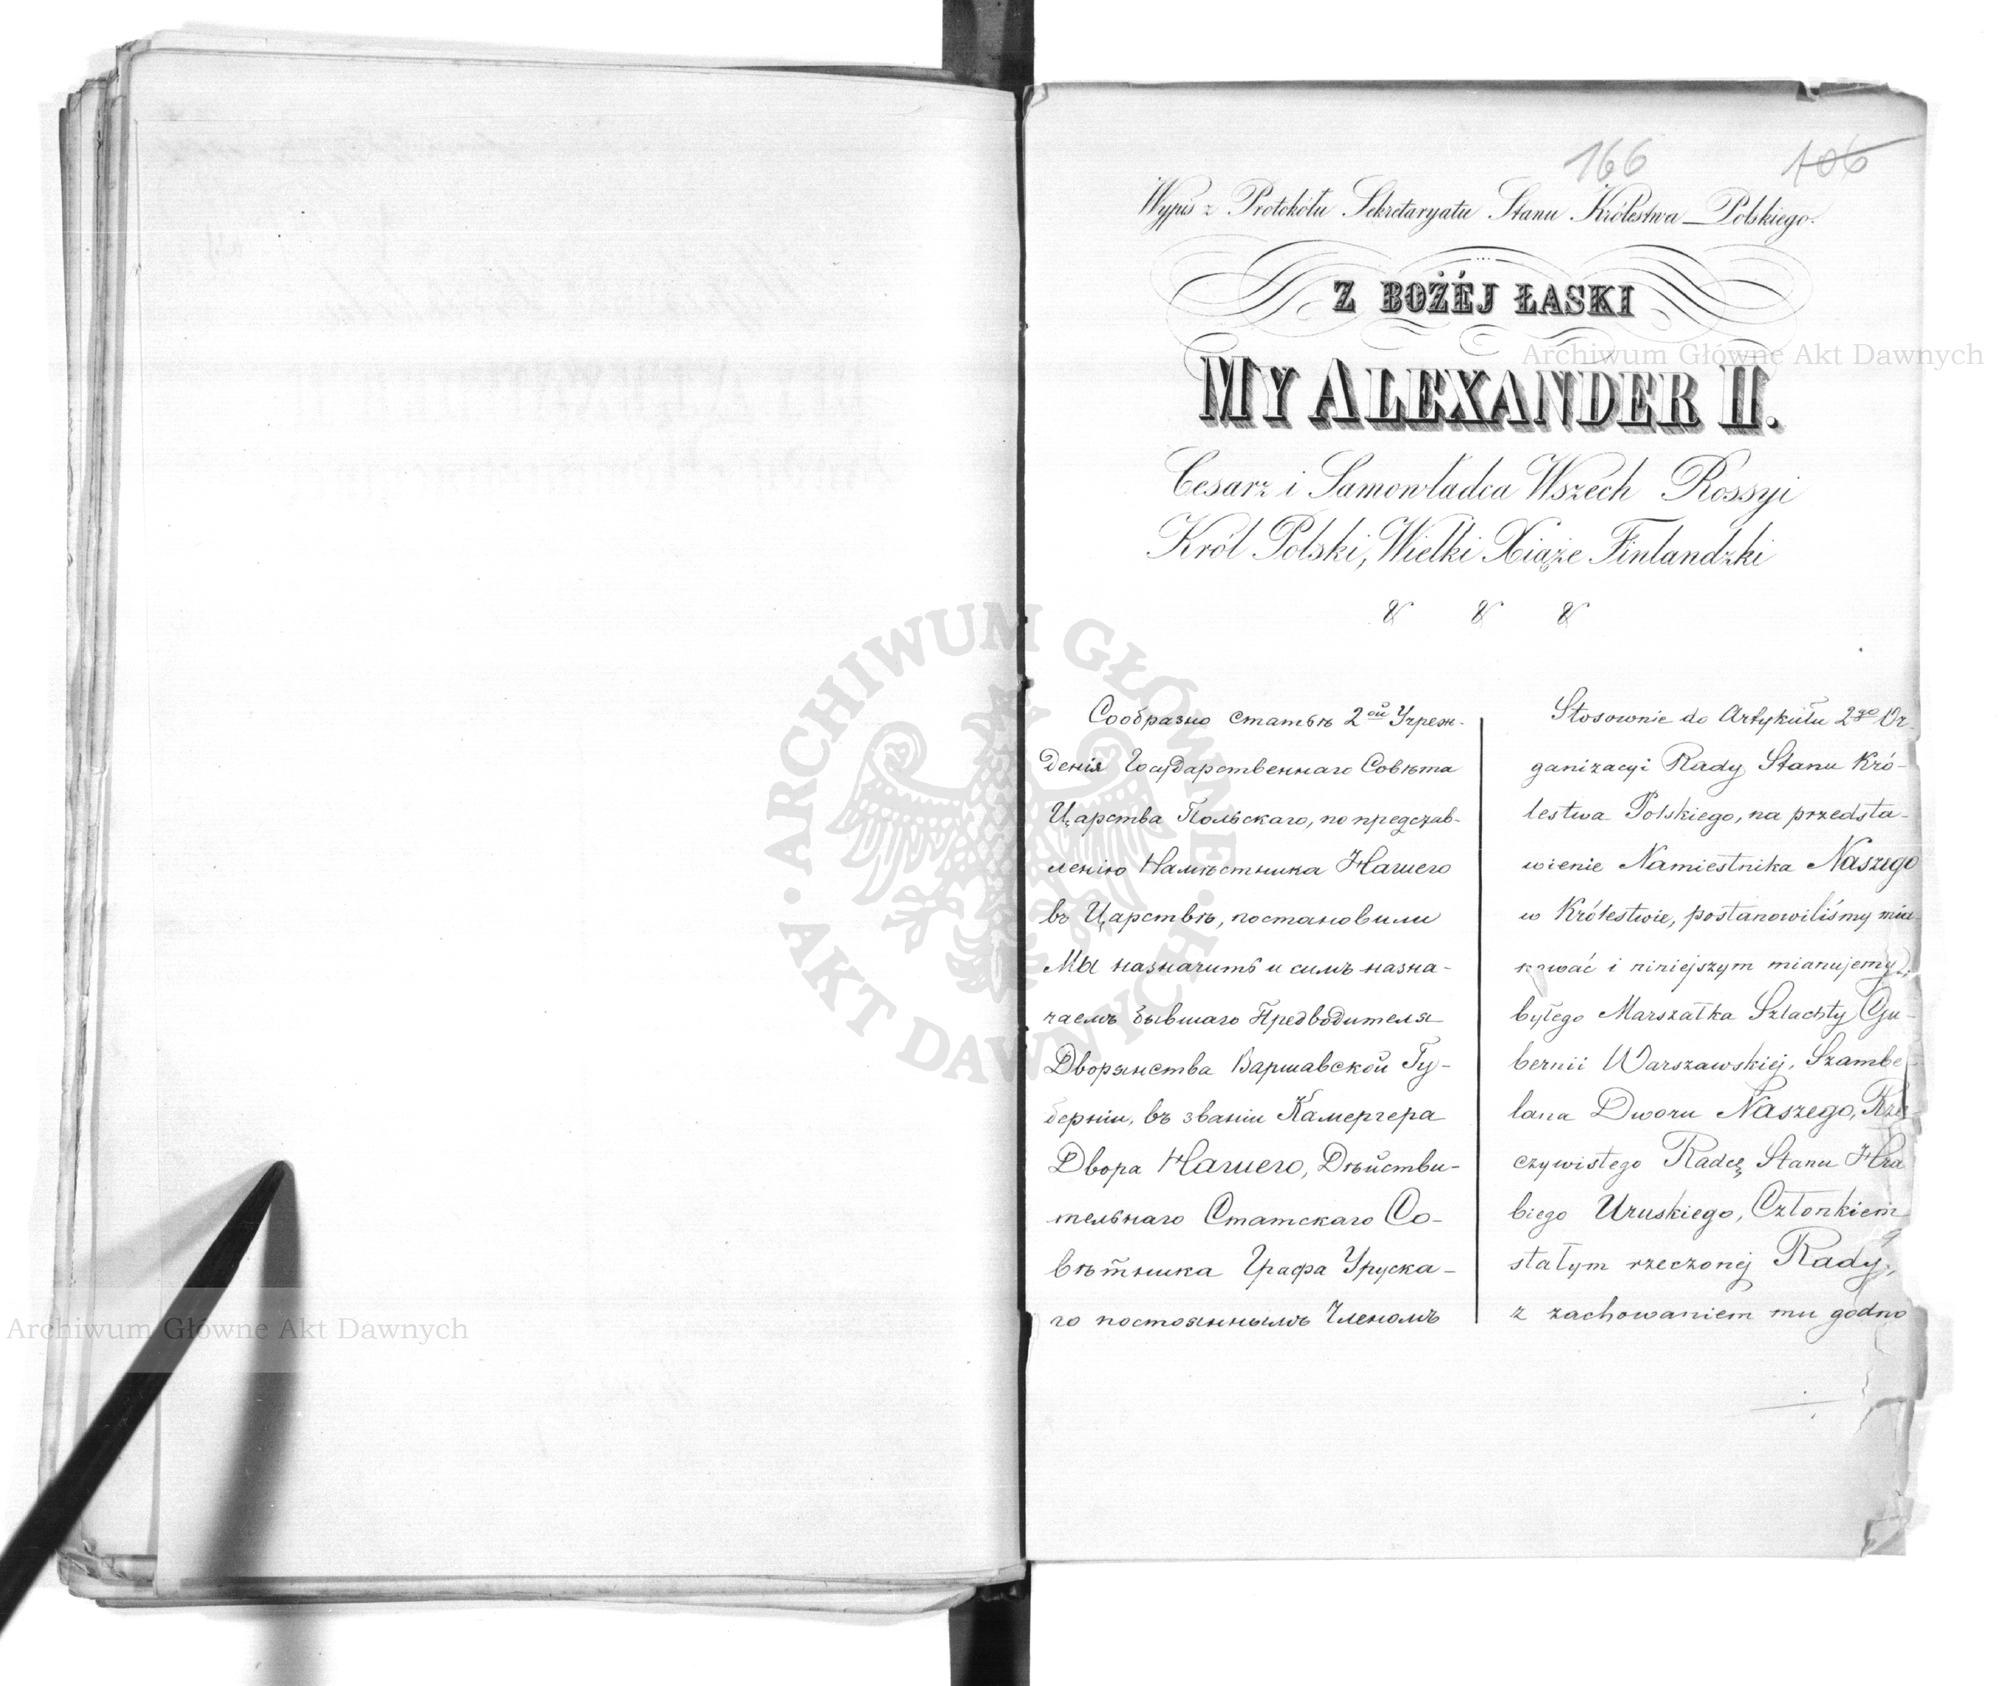 166 106
Wypis z Protokółu Sekretaryatu Stanu Królestwa Polskiego.
Z BOŻÉJ ŁASKI
MY ALEXANDER II.
Cesarz i Samowładca Wszech Rossyi
Król Polski, Wielki Xiąże Finlandzki
& & &
Сообразно статьѣ 2ой Учреж-
денія Государственнаго Совѣта
Царства Польскаго, по представ-
ленію Намѣстника Нашего
въ Царствѣ, постановили
Мы назначить и симъ назна-
чаемъ бывшаго Предводителя
Дворянства Варшавской Гу-
берніи, въ званіи Камергера
Двора Нашего, Дѣйстви-
тельнаго Статскаго Со-
вѣтника Графа Уруска-
го постояннымъ Членомъ
Stosownie do Artykułu 2go Or-
ganizacyi Rady Stanu Kró-
lestwa Polskiego, na przedsta-
wienie Namiestnika Naszego
w Królestwie, postanowiliśmy mia-
nować i niniejszym mianujemy,
byłego Marszałka Szlachty Gu-
bernii Warszawskiej, Szambe-
lana Dworu Naszego, Rze-
czywistego Radcę Stanu Hra
biego Uruskiego, Członkiem
stałym rzeczonej Rady,
z zachowaniem mu godno
Archiwum Główne Akt Dawnych
Archiwum Główne Akt Dawnych
ARCHIWUM GŁÓWNE AKT DAWNYCH